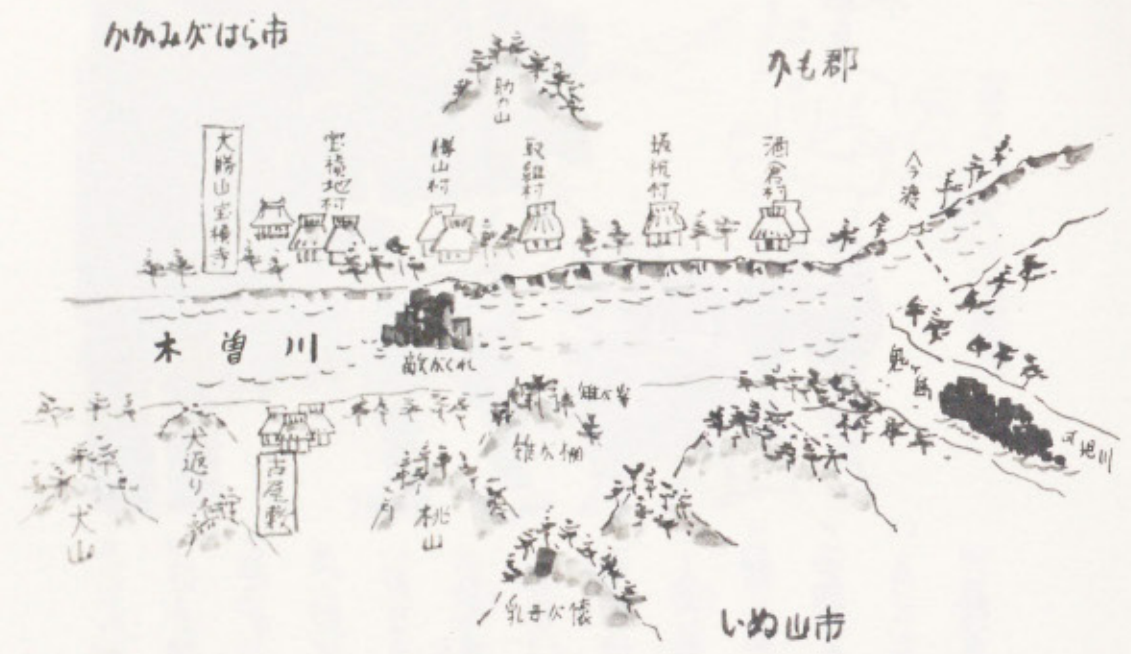 かかみがはら市
かも郡
助の山
大勝山宝積寺
宝積地村
勝山村
取組村
坂祝村
酒倉村
今渡
木曽川
敵がくれ
鬼ヶ島
犬返り
古屋敷
犬山
桃山
乳母が懐
いぬ山市